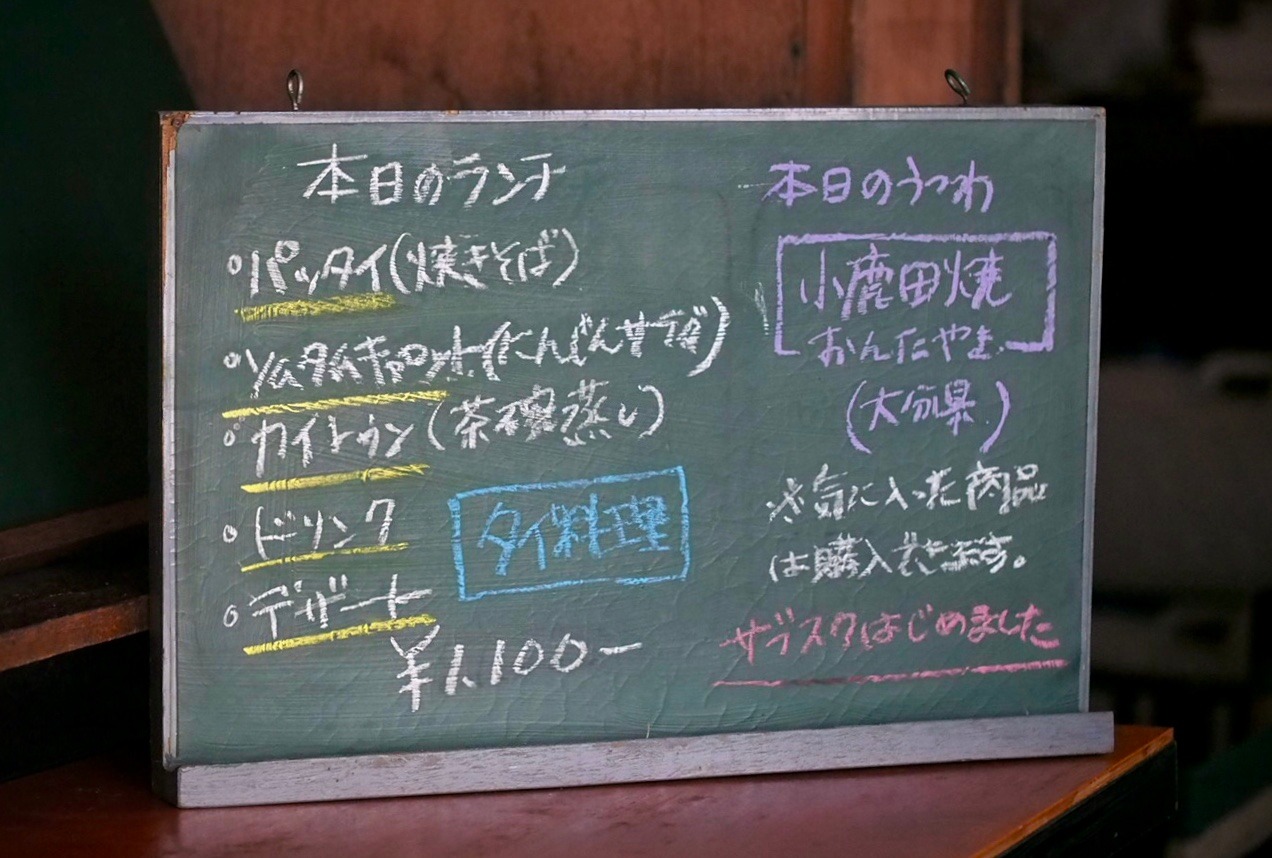 本日のランチ
・パッタイ(焼きそば)
・ソムタムキャロット(にんじんサラダ)
・カイトゥン(茶碗蒸し)
・ドリンク
・デザート
タイ料理
¥1,100ー
本日のうつわ
小鹿田焼
おんたやき
(大分県)
※気に入った商品
は購入できます。
サブスクはじめました